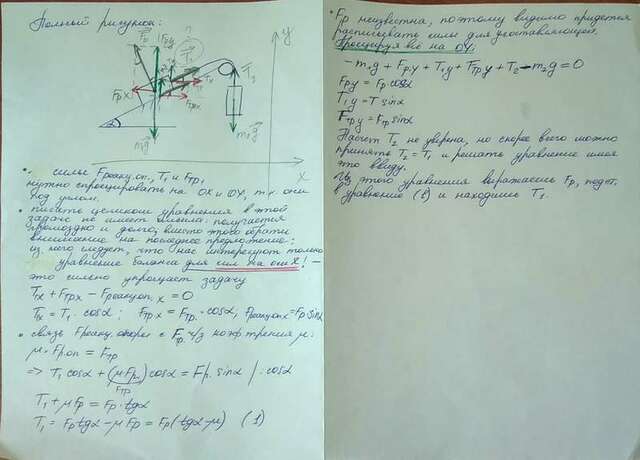 Полный рисунок:
y
x
α
m₁g
m₂g
T₂
T₁
Fрx
• силы Fреакц.оп., T₁ и Fтр,
нужно спроцировать на OX и OY, т.к они
под углом.
• писать целиком уравнения в этой
задаче не имеет смысла: получается
громоздко и долго, вместо этого обрати
внимание на последнее предложение:
из него следует, что нас интересуют только
уравнение баланса для сил на оси X! –
это сильно упрощает задачу
Tx + Fтрx – Fреакц.оп.x = 0
Tx = T₁ · cosα; Fтрx = Fтр. · cosα, Fреакц.опx = Fр sinα
• связь Fреакц.опоры с Fтр. ч/з коэф трения μ:
μ · Fр.оп = Fтр
=> T₁ cosα + (μFр) cosα = Fр. sinα /: cosα
Fтр
T₁ + μFр = Fр · tgα
T₁ = Fр tgα – μFр = Fр(tgα – μ) (1)
• Fр неизвестна, поэтому видимо придется
расписывать силы для y составляющей.
Проецируя всё на OY:
– m₁g + Fр.y + T₁y + Fтр.y + T₂ – m₂g = 0
Fр.y = Fр. cosα
T₁y = T sinα
Fтр y = Fтр sinα
Насчет T₂ не уверена, но скорее всего можно
принять T₂ = T₁ и решать уравнение имея
это ввиду.
Из этого уравнения выражаешь Fр, подст.
в уравнение (1) и находишь T₁.